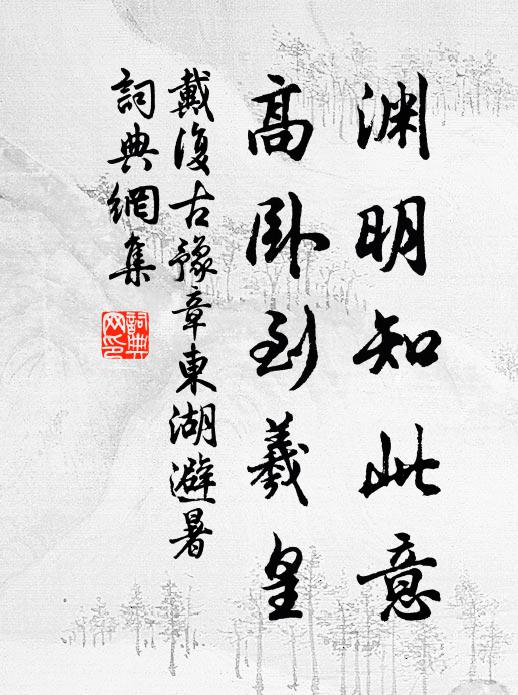 渊明知此意
高卧到羲皇
戴復古豫章東湖避暑
詞典網集
詞典网印